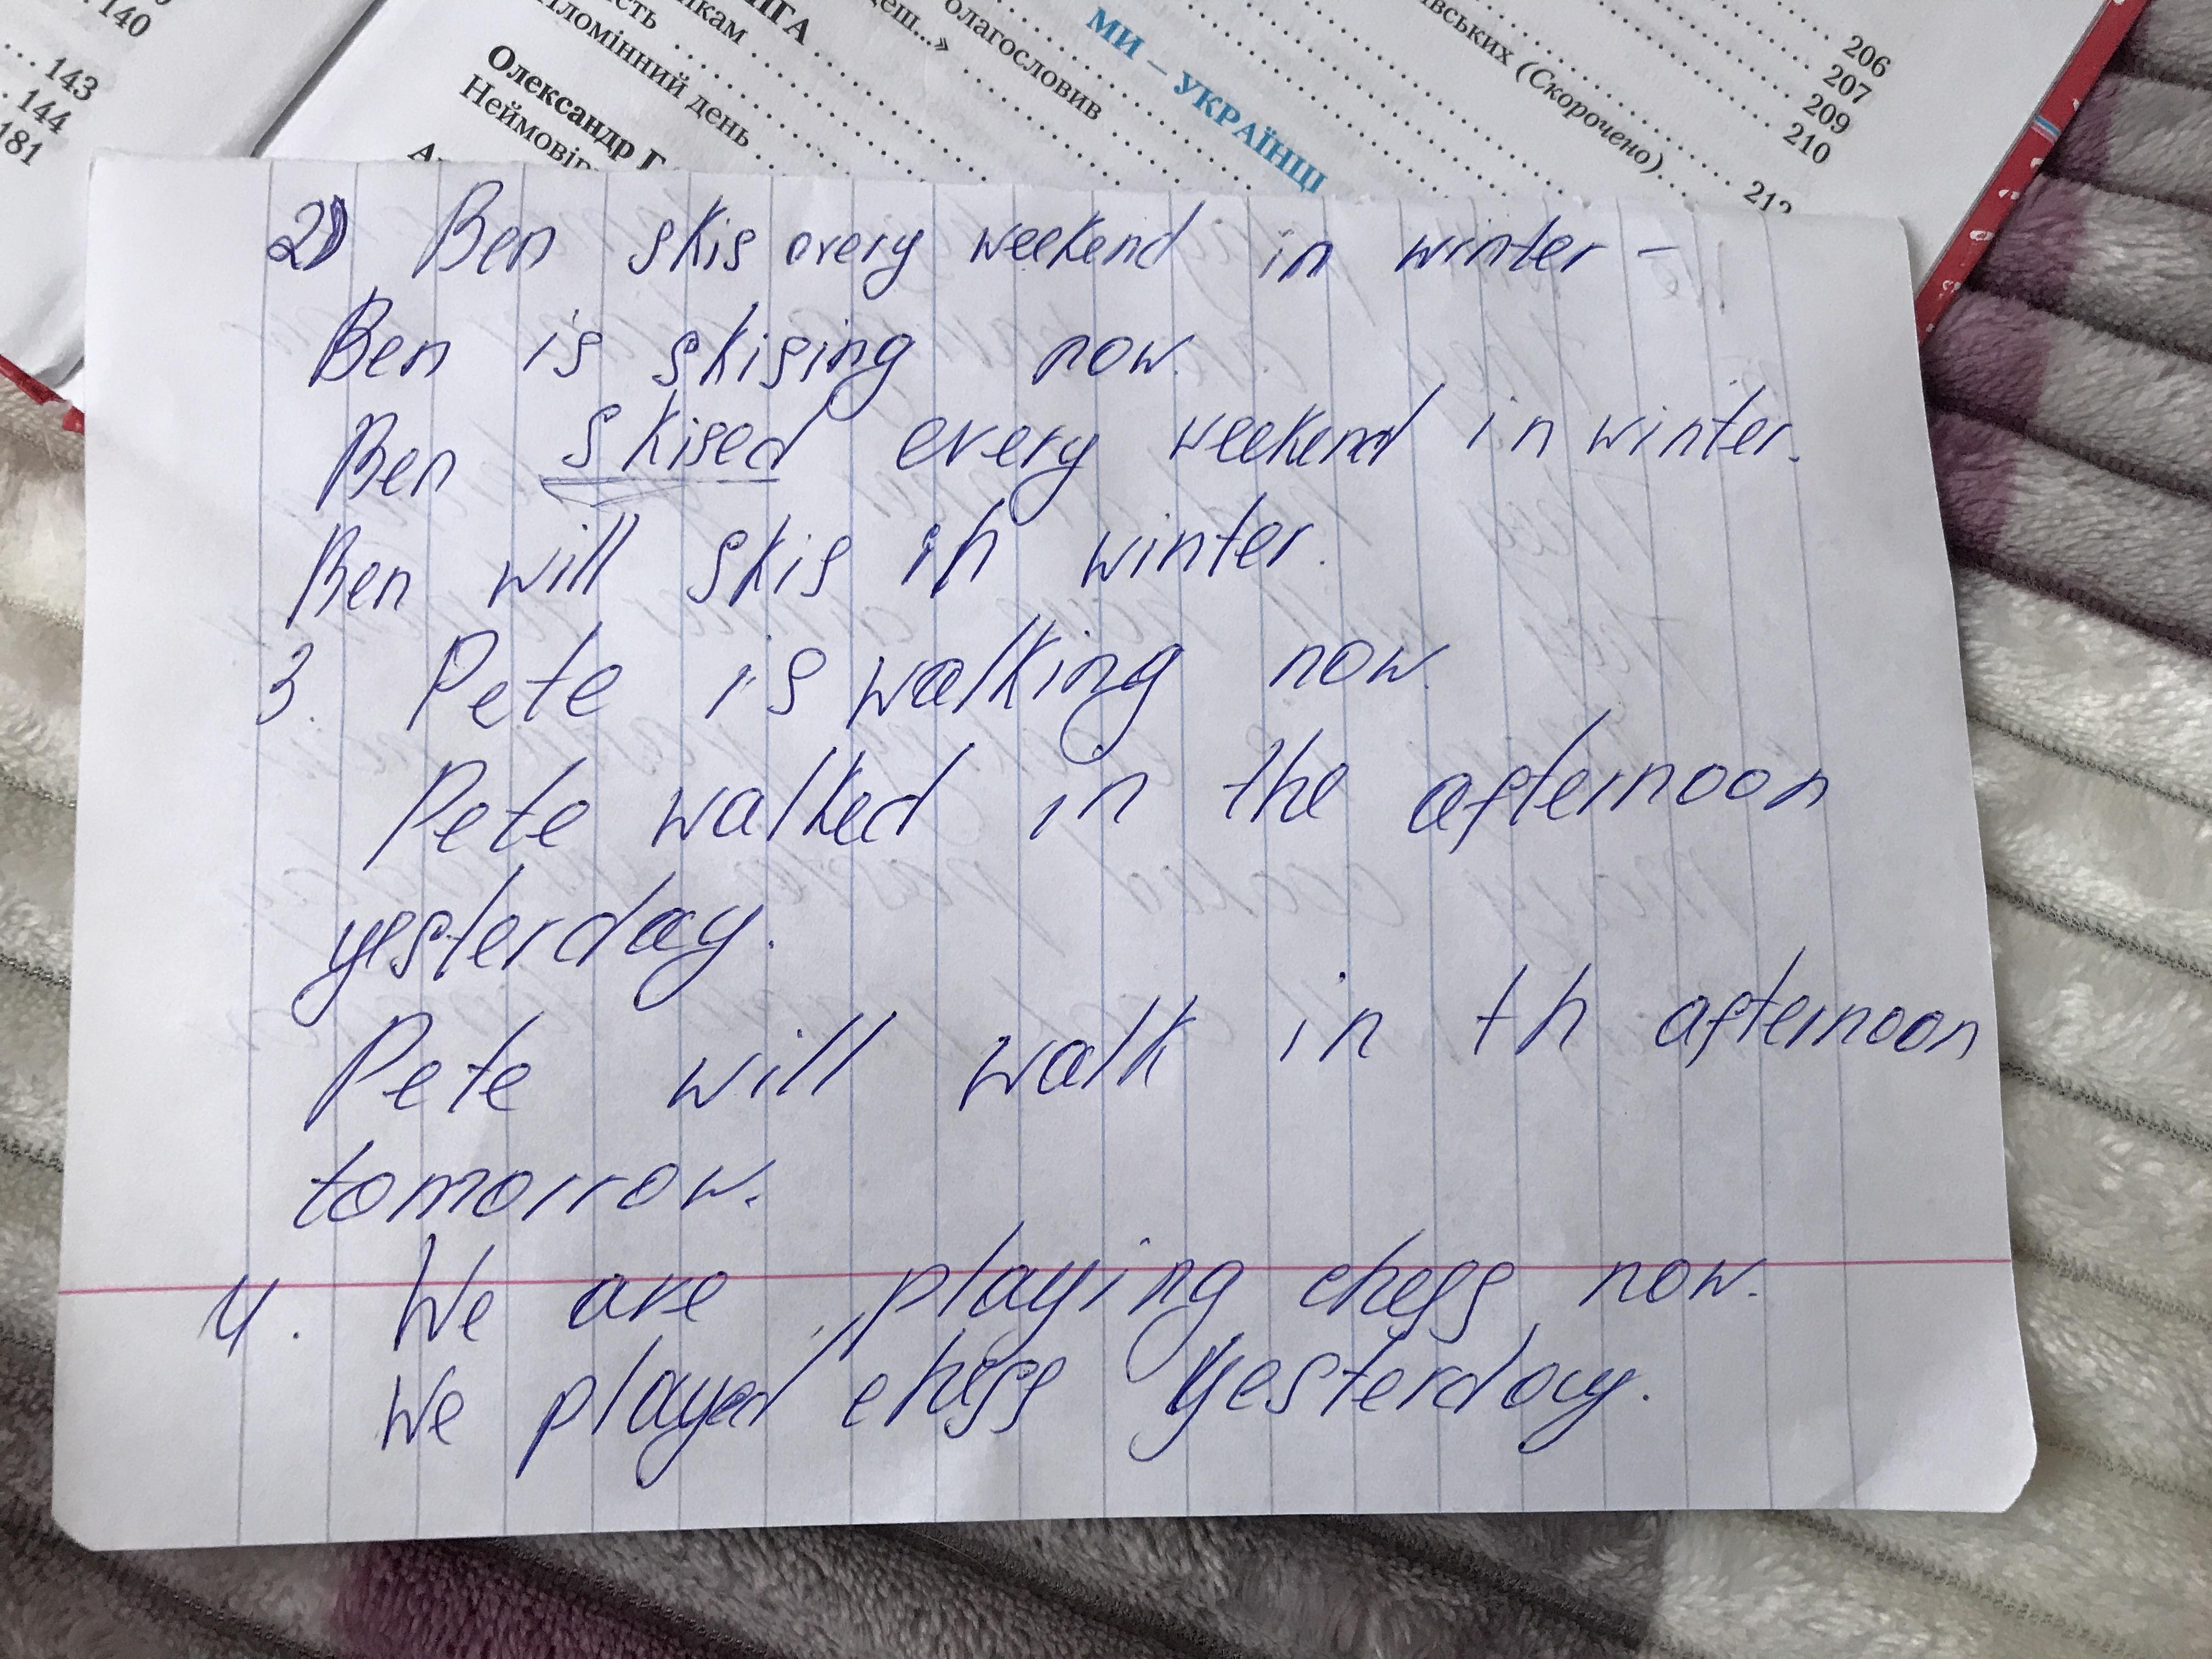 140
143
144
181
ІНГА
кам
ість
Пломінний день
Олександр Г
Неймовір
деш...»
олагословив
МИ – УКРАЇНЦІ
івських (Скорочено)
206
207
209
210
212
2) Ben skis every weekend in winter –
Ben is skising now.
Ben skised every weekend in winter.
Ben will skis in winter.
3. Pete is walking now.
Pete walked in the afternoon
yesterday.
Pete will walk in th afternoon
tomorrow.
4. We are playing chess now.
We played chess yesterday.